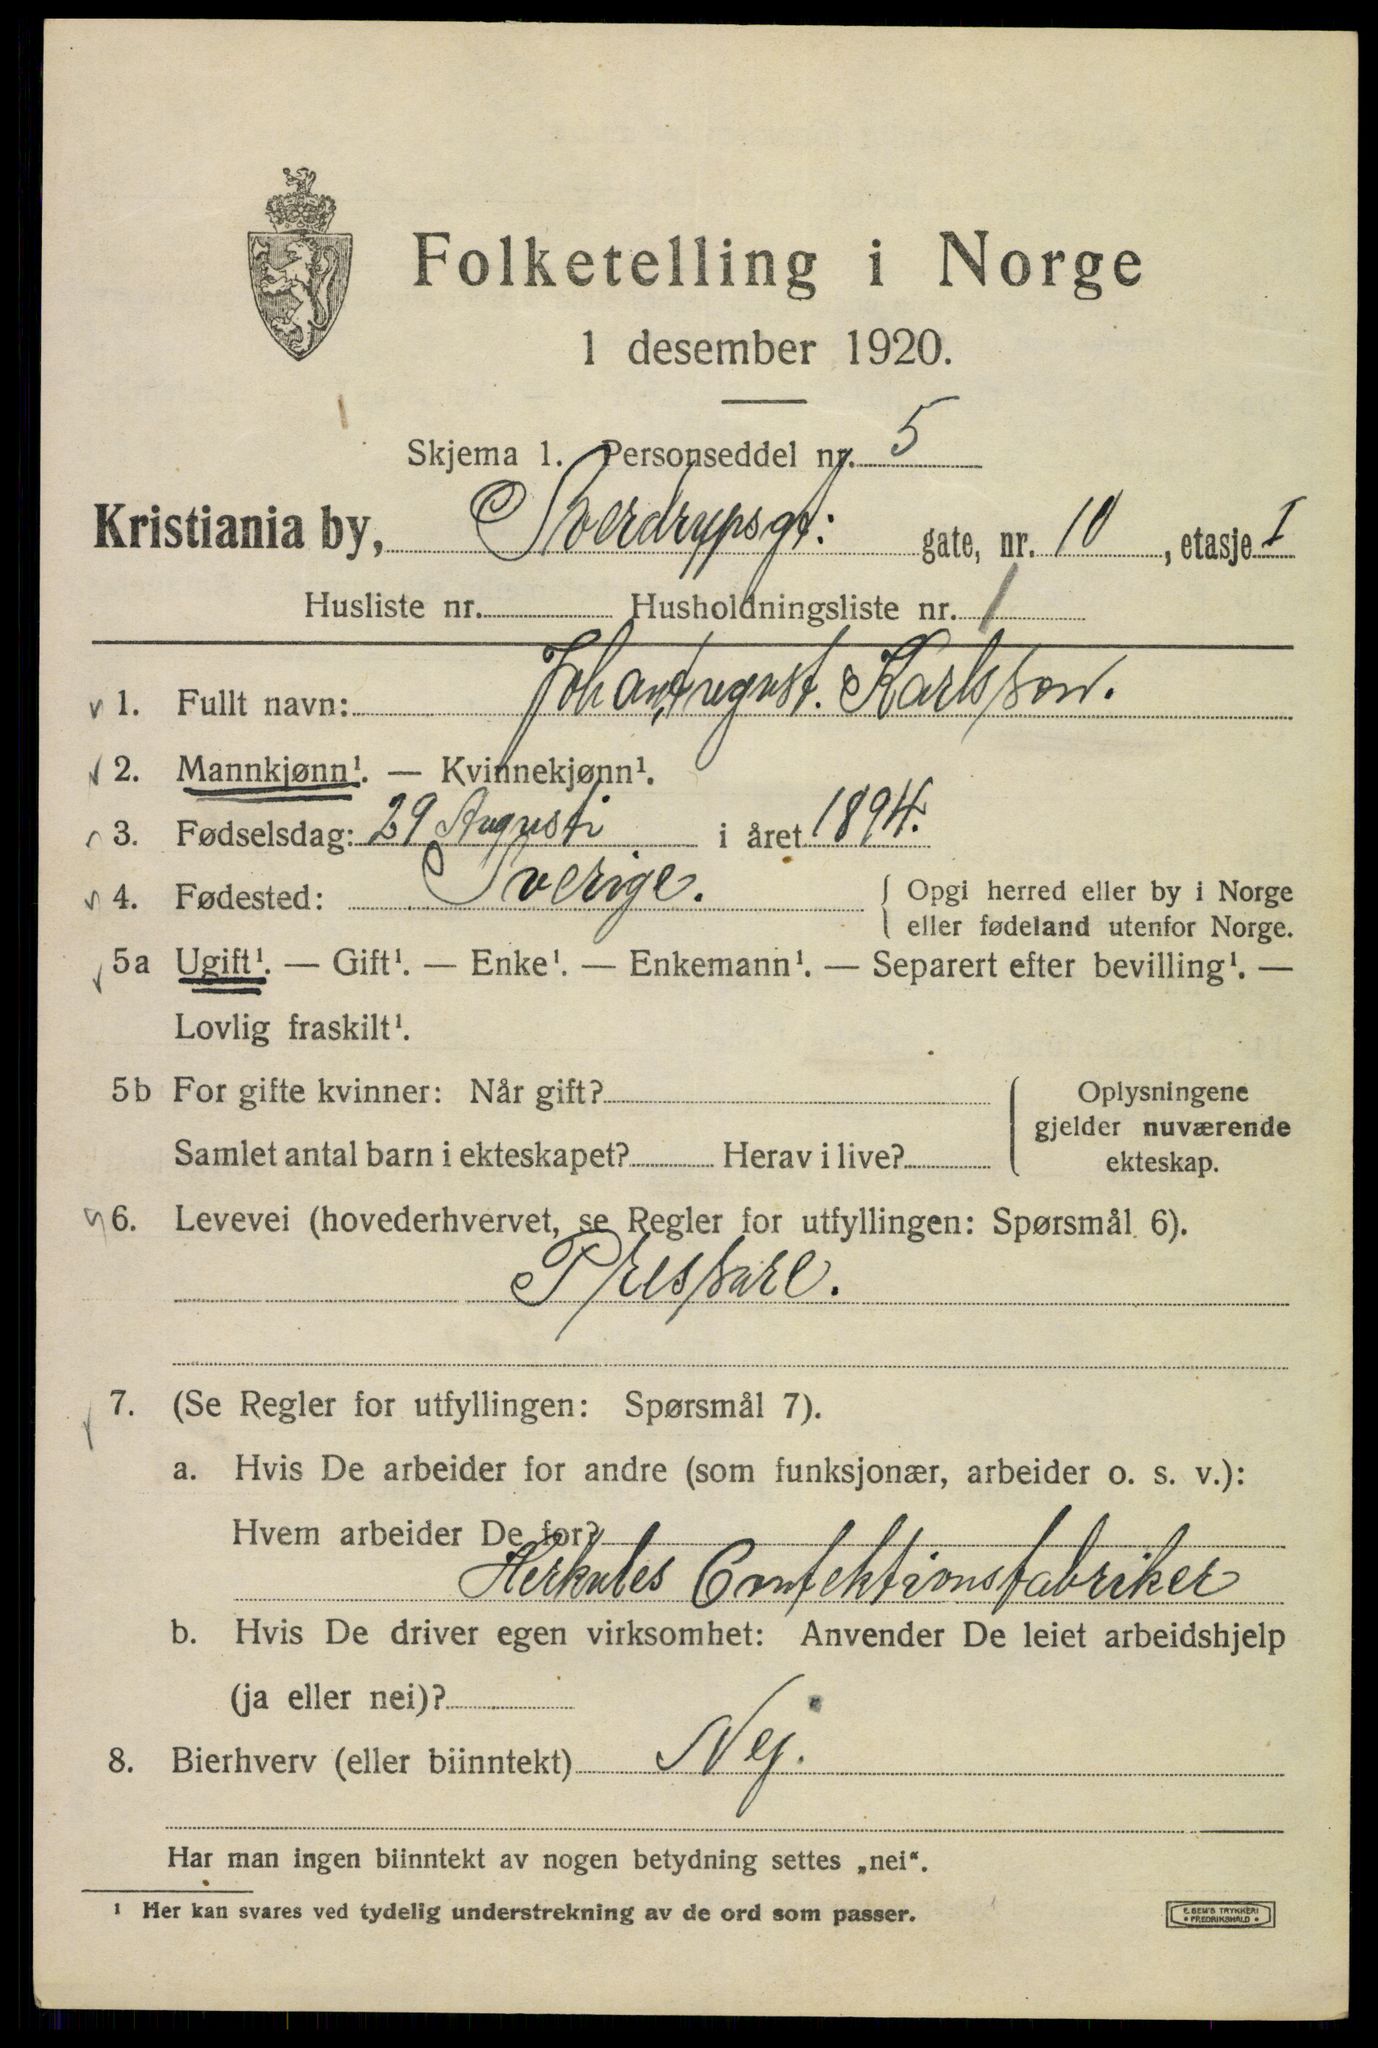 Folketelling i Norge
1 desember 1920.
Skjema 1. Personseddel nr. 5
Kristiania by, Sverdrupsgt: gate, nr. 10, etasje I
Husliste nr. Husholdningsliste nr. 1
1. Fullt navn: Johan August. Karlsson.
2. Mannkjønn¹. — Kvinnekjønn¹.
3. Fødselsdag: 29 Augusti i året 1894.
4. Fødested: Sverige. { Opgi herred eller by i Norge
eller fødeland utenfor Norge.
5a Ugift¹. — Gift¹. — Enke¹. — Enkemann¹. — Separert efter bevilling¹. —
Lovlig fraskilt¹.
5b For gifte kvinner: Når gift? { Oplysningene
gjelder nuværende
Samlet antal barn i ekteskapet? Herav i live? ekteskap.
6. Levevei (hovederhvervet, se Regler for utfyllingen: Spørsmål 6).
Pressare.
7. (Se Regler for utfyllingen: Spørsmål 7).
a. Hvis De arbeider for andre (som funksjonær, arbeider o. s. v.):
Hvem arbeider De for?
Herkules Confektionsfabriker
b. Hvis De driver egen virksomhet: Anvender De leiet arbeidshjelp
(ja eller nei)?
8. Bierhverv (eller biinntekt) Nej.
Har man ingen biinntekt av nogen betydning settes „nei“.
¹ Her kan svares ved tydelig understrekning av de ord som passer.
E. SEM'S TRYKKERI
FREDRIKSHALD